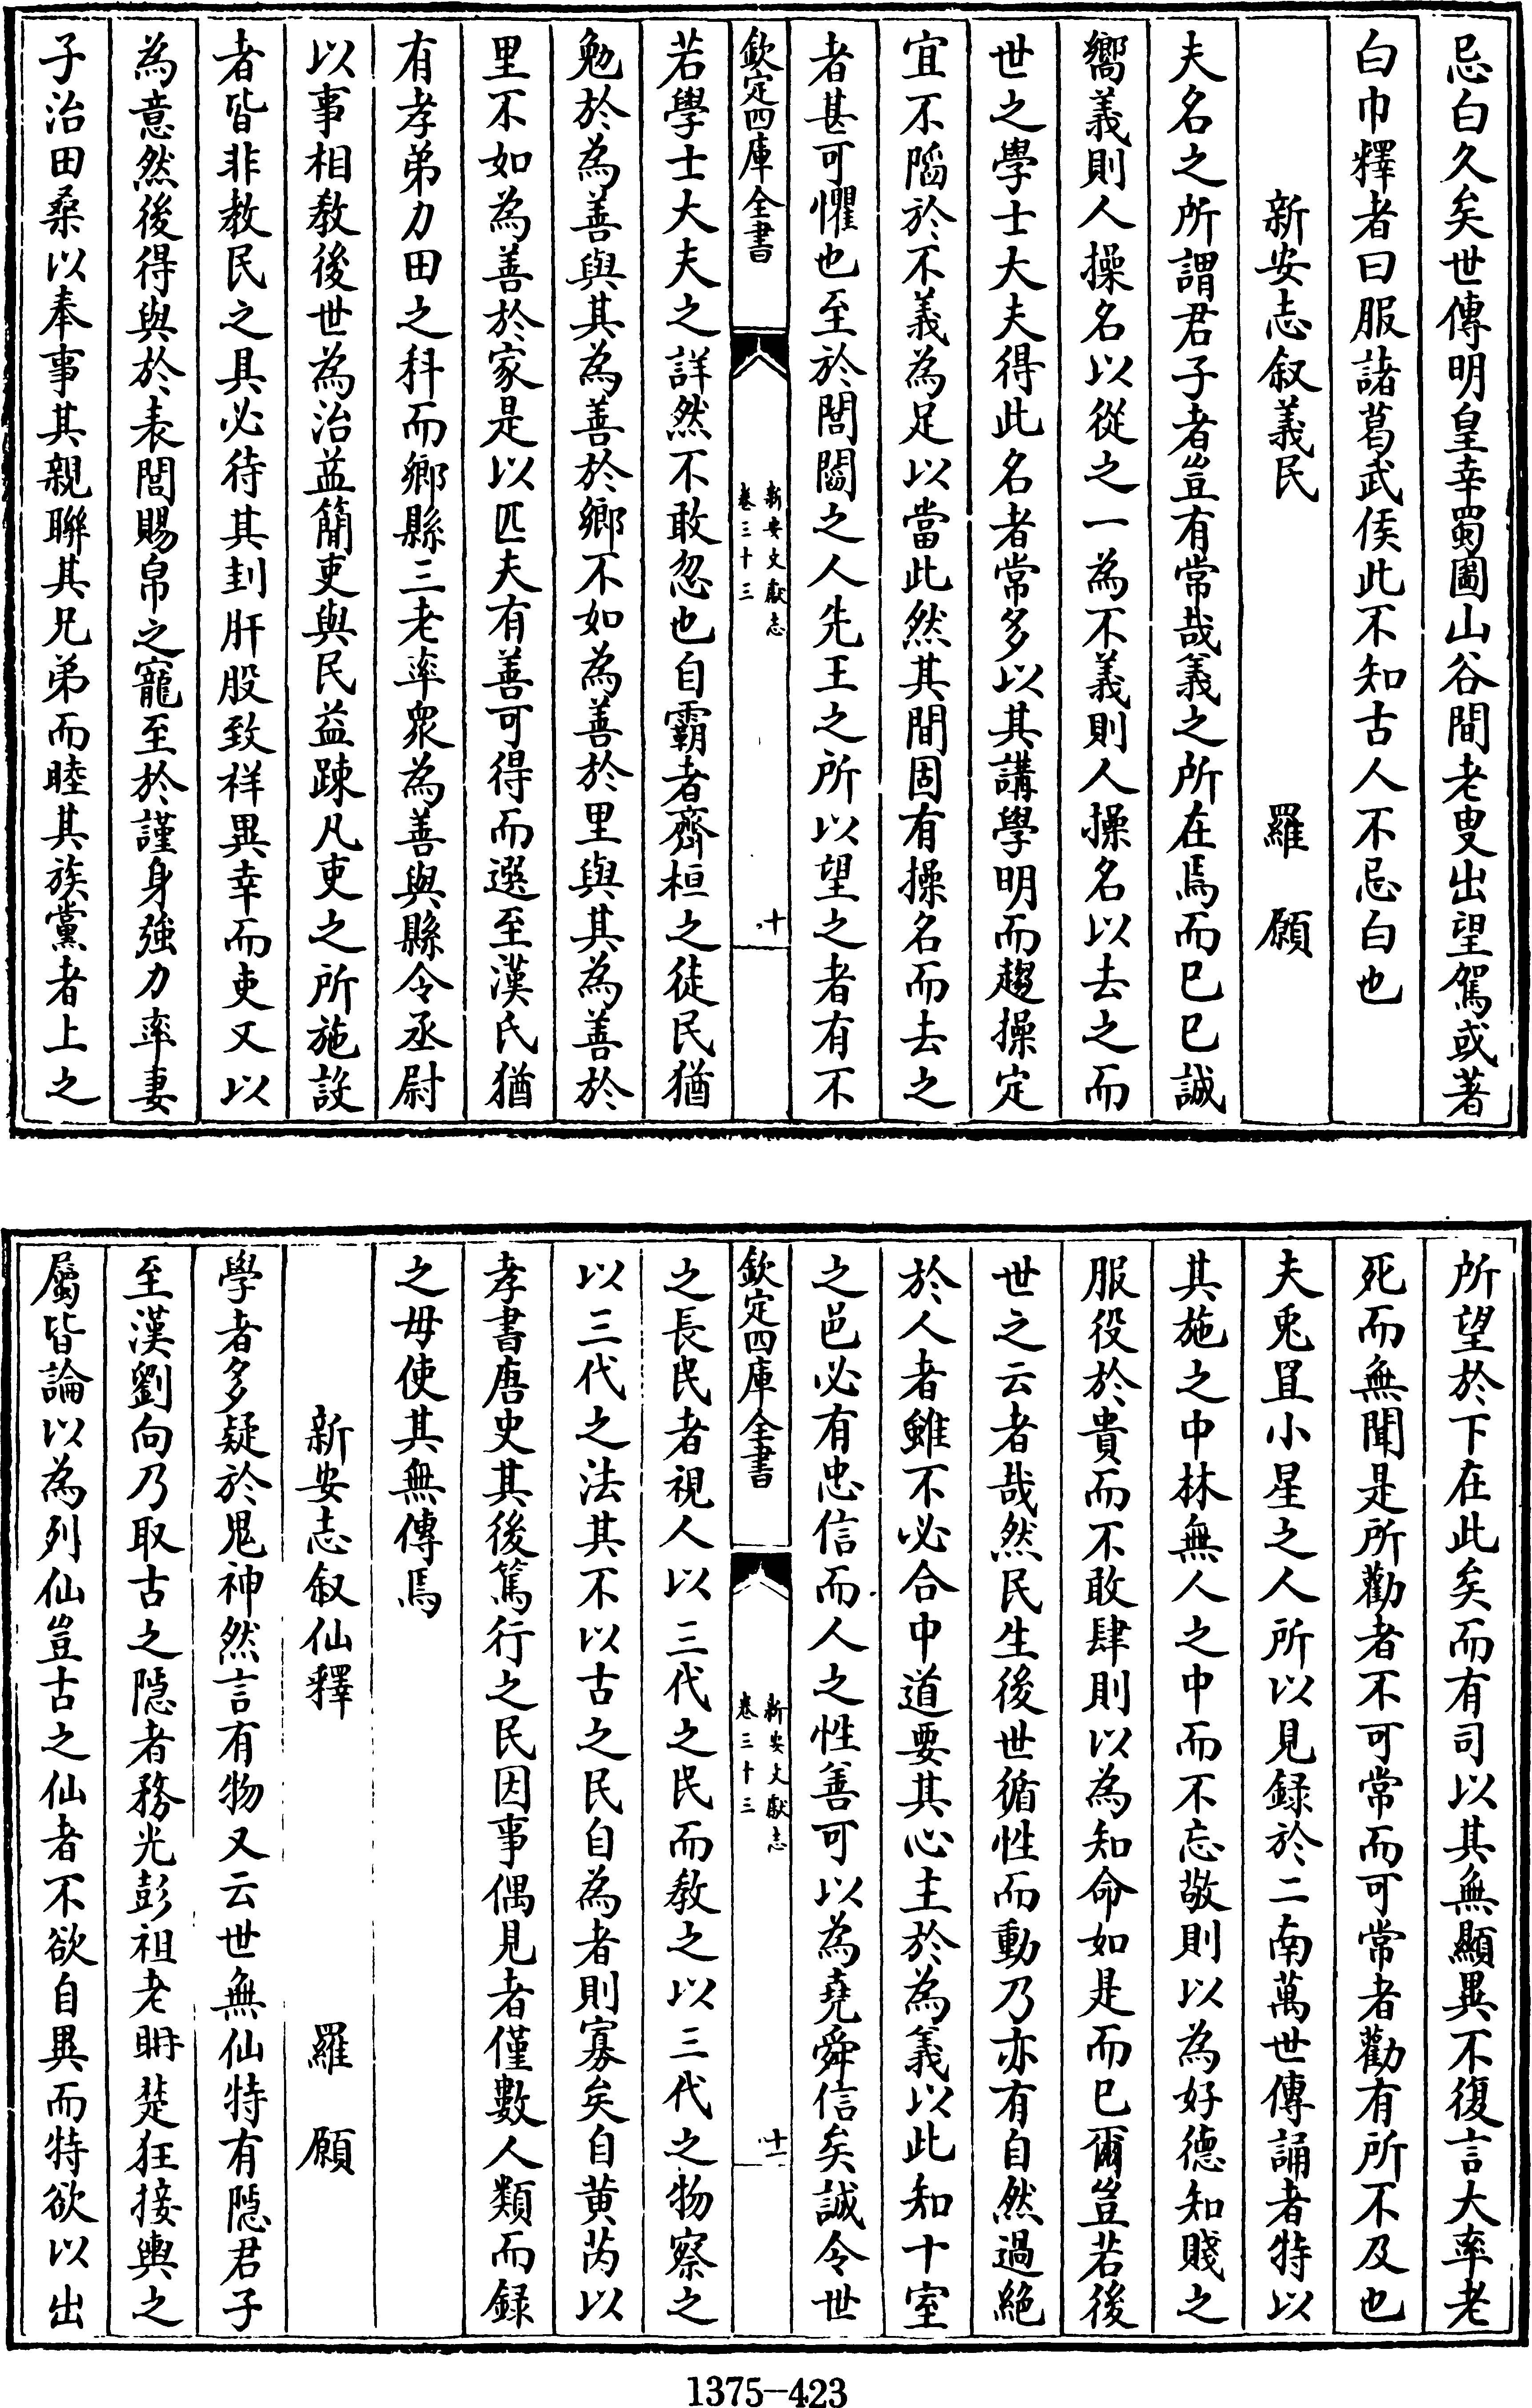 忌白久矣世傳明皇幸蜀圖山谷間老叟出望駕或著
白巾釋者曰服諸葛武侯此不知古人不忌白也
新安志叙義民　羅願
夫名之所謂君子者豈有常哉義之所在焉而已已誠
嚮義則人操名以從之一為不義則人操名以去之而
世之學士大夫得此名者常多以其講學明而趨操定
宜不陷於不義為足以當此然其間固有操名而去之
者甚可懼也至於閭閻之人先王之所以望之者有不
欽定四庫全書
新安文獻志
卷三十三
十
若學士大夫之詳然不敢忽也自霸者齊桓之徒民猶
勉於為善與其為善於鄉不如為善於里與其為善於
里不如為善於家是以匹夫有善可得而選至漢氏猶
有孝弟力田之科而鄉縣三老率衆為善與縣令丞尉
以事相教後世為治益簡吏與民益踈凡吏之所施設
者皆非教民之具必待其刲肝股致祥異幸而吏又以
為意然後得與於表閭賜帛之寵至於謹身強力率妻
子治田桑以奉事其親聯其兄弟而睦其族黨者上之
所望於下在此矣而有司以其無顯異不復言大率老
死而無聞是所勸者不可常而可常者勸有所不及也
夫兎罝小星之人所以見録於二南萬世傳誦者特以
其施之中林無人之中而不忘敬則以為好德知賤之
服役於貴而不敢肆則以為知命如是而已爾豈若後
世之云者哉然民生後世循性而動乃亦有自然過絶
於人者雖不必合中道要其心主於為義以此知十室
之邑必有忠信而人之性善可以為堯舜信矣誠令世
欽定四庫全書
新安文獻志
卷三十三
十一
之長民者視人以三代之民而教之以三代之物察之
以三代之法其不以古之民自為者則寡矣自黄芮以
孝書唐史其後篤行之民因事偶見者僅數人類而録
之毋使其無傳焉
新安志叙仙釋　羅願
學者多疑於鬼神然言有物又云世無仙特有隠君子
至漢劉向乃取古之隠者務光彭祖老耼楚狂接輿之
屬皆論以為列仙豈古之仙者不欲自異而特欲以出
1375-423